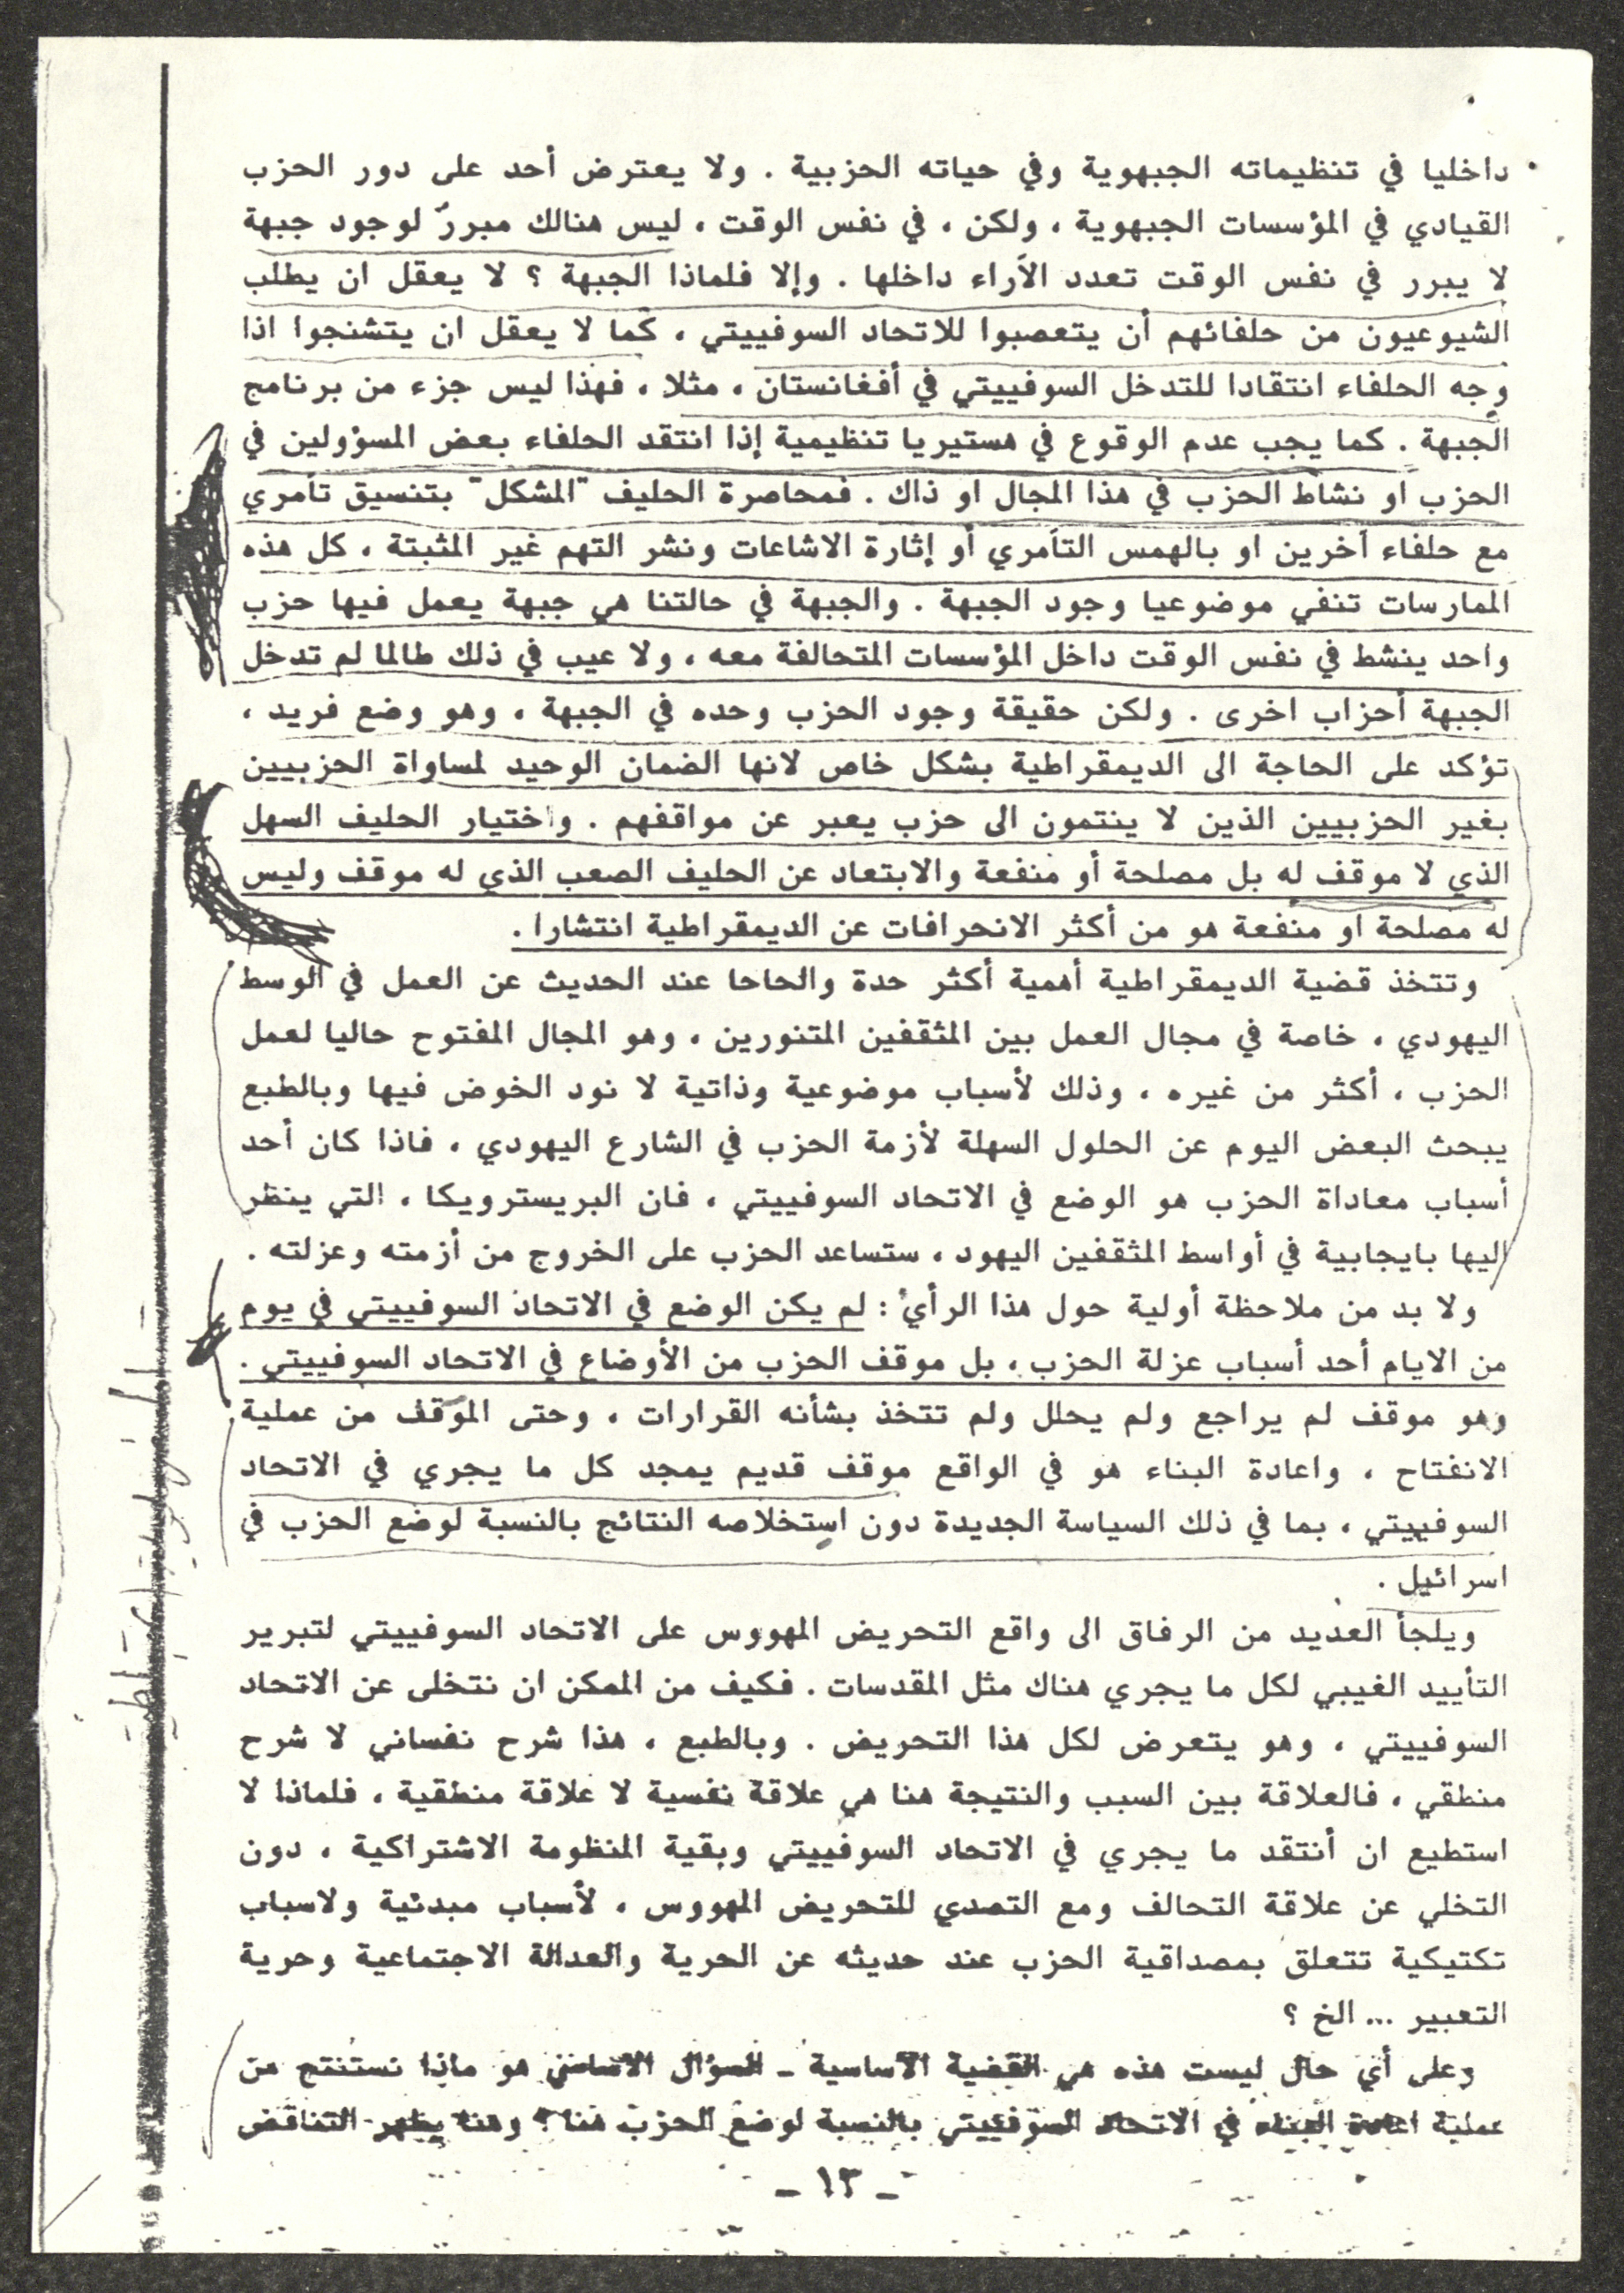 داخليا في تنظيماته الجبهوية وفي حياته الحزبية . ولا يعترض أحد على دور الحزب
القيادي في المؤسسات الجبهوية ، ولكن ، في نفس الوقت ، ليس هنالك مبرر لوجود جبهة
لا يبرر في نفس الوقت تعدد الآراء داخلها . وإلا فلماذا الجبهة ؟ لا يعقل ان يطلب
الشيوعيون من حلفائهم أن يتعصبوا للاتحاد السوفييتي ، كما لا يعقل ان يتشنجوا اذا
وجه الحلفاء انتقادا للتدخل السوفييتي في أفغانستان ، مثلا ، فهذا ليس جزء من برنامج
الجبهة . كما يجب عدم الوقوع في هستيريا تنظيمية إذا انتقد الحلفاء بعض المسؤولين في
الحزب او نشاط الحزب في هذا المجال او ذاك . فمحاصرة الحليف "المشكل" بتنسيق تآمري
مع حلفاء آخرين او بالهمس التآمري أو إثارة الاشاعات ونشر التهم غير المثبتة ، كل هذه
الممارسات تنفي موضوعيا وجود الجبهة . والجبهة في حالتنا هي جبهة يعمل فيها حزب
واحد ينشط في نفس الوقت داخل المؤسسات المتحالفة معه ، ولا عيب في ذلك طالما لم تدخل
الجبهة أحزاب اخرى . ولكن حقيقة وجود الحزب وحده في الجبهة ، وهو وضع فريد ،
تؤكد على الحاجة الى الديمقراطية بشكل خاص لانها الضمان الوحيد لمساواة الحزبيين
بغير الحزبيين الذين لا ينتمون الى حزب يعبر عن مواقفهم . واختيار الحليف السهل
الذي لا موقف له بل مصلحة أو منفعة والابتعاد عن الحليف الصعب الذي له موقف وليس
له مصلحة او منفعة هو من أكثر الانحرافات عن الديمقراطية انتشارا .
وتتخذ قضية الديمقراطية أهمية أكثر حدة والحاحا عند الحديث عن العمل في الوسط
اليهودي ، خاصة في مجال العمل بين المثقفين المتنورين ، وهو المجال المفتوح حاليا لعمل
الحزب ، أكثر من غيره ، وذلك لأسباب موضوعية وذاتية لا نود الخوض فيها وبالطبع
يبحث البعض اليوم عن الحلول السهلة لأزمة الحزب في الشارع اليهودي ، فاذا كان أحد
أسباب معاداة الحزب هو الوضع في الاتحاد السوفييتي ، فان البريسترويكا ، التي ينظر
اليها بايجابية في أواسط المثقفين اليهود ، ستساعد الحزب على الخروج من أزمته وعزلته .
ولا بد من ملاحظة أولية حول هذا الرأي : لم يكن الوضع في الاتحاد السوفييتي في يوم
من الايام أحد أسباب عزلة الحزب ، بل موقف الحزب من الأوضاع في الاتحاد السوفييتي .
وهو موقف لم يراجع ولم يحلل ولم تتخذ بشأنه القرارات ، وحتى الموقف من عملية
الانفتاح ، واعادة البناء هو في الواقع موقف قديم يمجد كل ما يجري في الاتحاد
السوفييتي ، بما في ذلك السياسة الجديدة دون استخلاصه النتائج بالنسبة لوضع الحزب في
اسرائيل .
ويلجأ العديد من الرفاق الى واقع التحريض المهووس على الاتحاد السوفييتي لتبرير
التأييد الغيبي لكل ما يجري هناك مثل المقدسات . فكيف من الممكن ان نتخلى عن الاتحاد
السوفييتي ، وهو يتعرض لكل هذا التحريض . وبالطبع ، هذا شرح نفساني لا شرح
منطقي ، فالعلاقة بين السبب والنتيجة هنا هي علاقة نفسية لا علاقة منطقية ، فلماذا لا
استطيع ان أنتقد ما يجري في الاتحاد السوفييتي وبقية المنظومة الاشتراكية ، دون
التخلي عن علاقة التحالف ومع التصدي للتحريض المهووس ، لأسباب مبدئية ولاسباب
تكتيكية تتعلق بمصداقية الحزب عند حديثه عن الحرية والعدالة الاجتماعية وحرية
التعبير ... الخ ؟
وعلى أي حال ليست هذه هي القضية الاساسية ـ السؤال الاساسي هو ماذا نستنتج من
عملية اعادة البناء في الاتحاد السوفييتي بالنسبة لوضع الحزب هنا ؟ وهنا يظهر التناقض
ـ ١٣ ـ